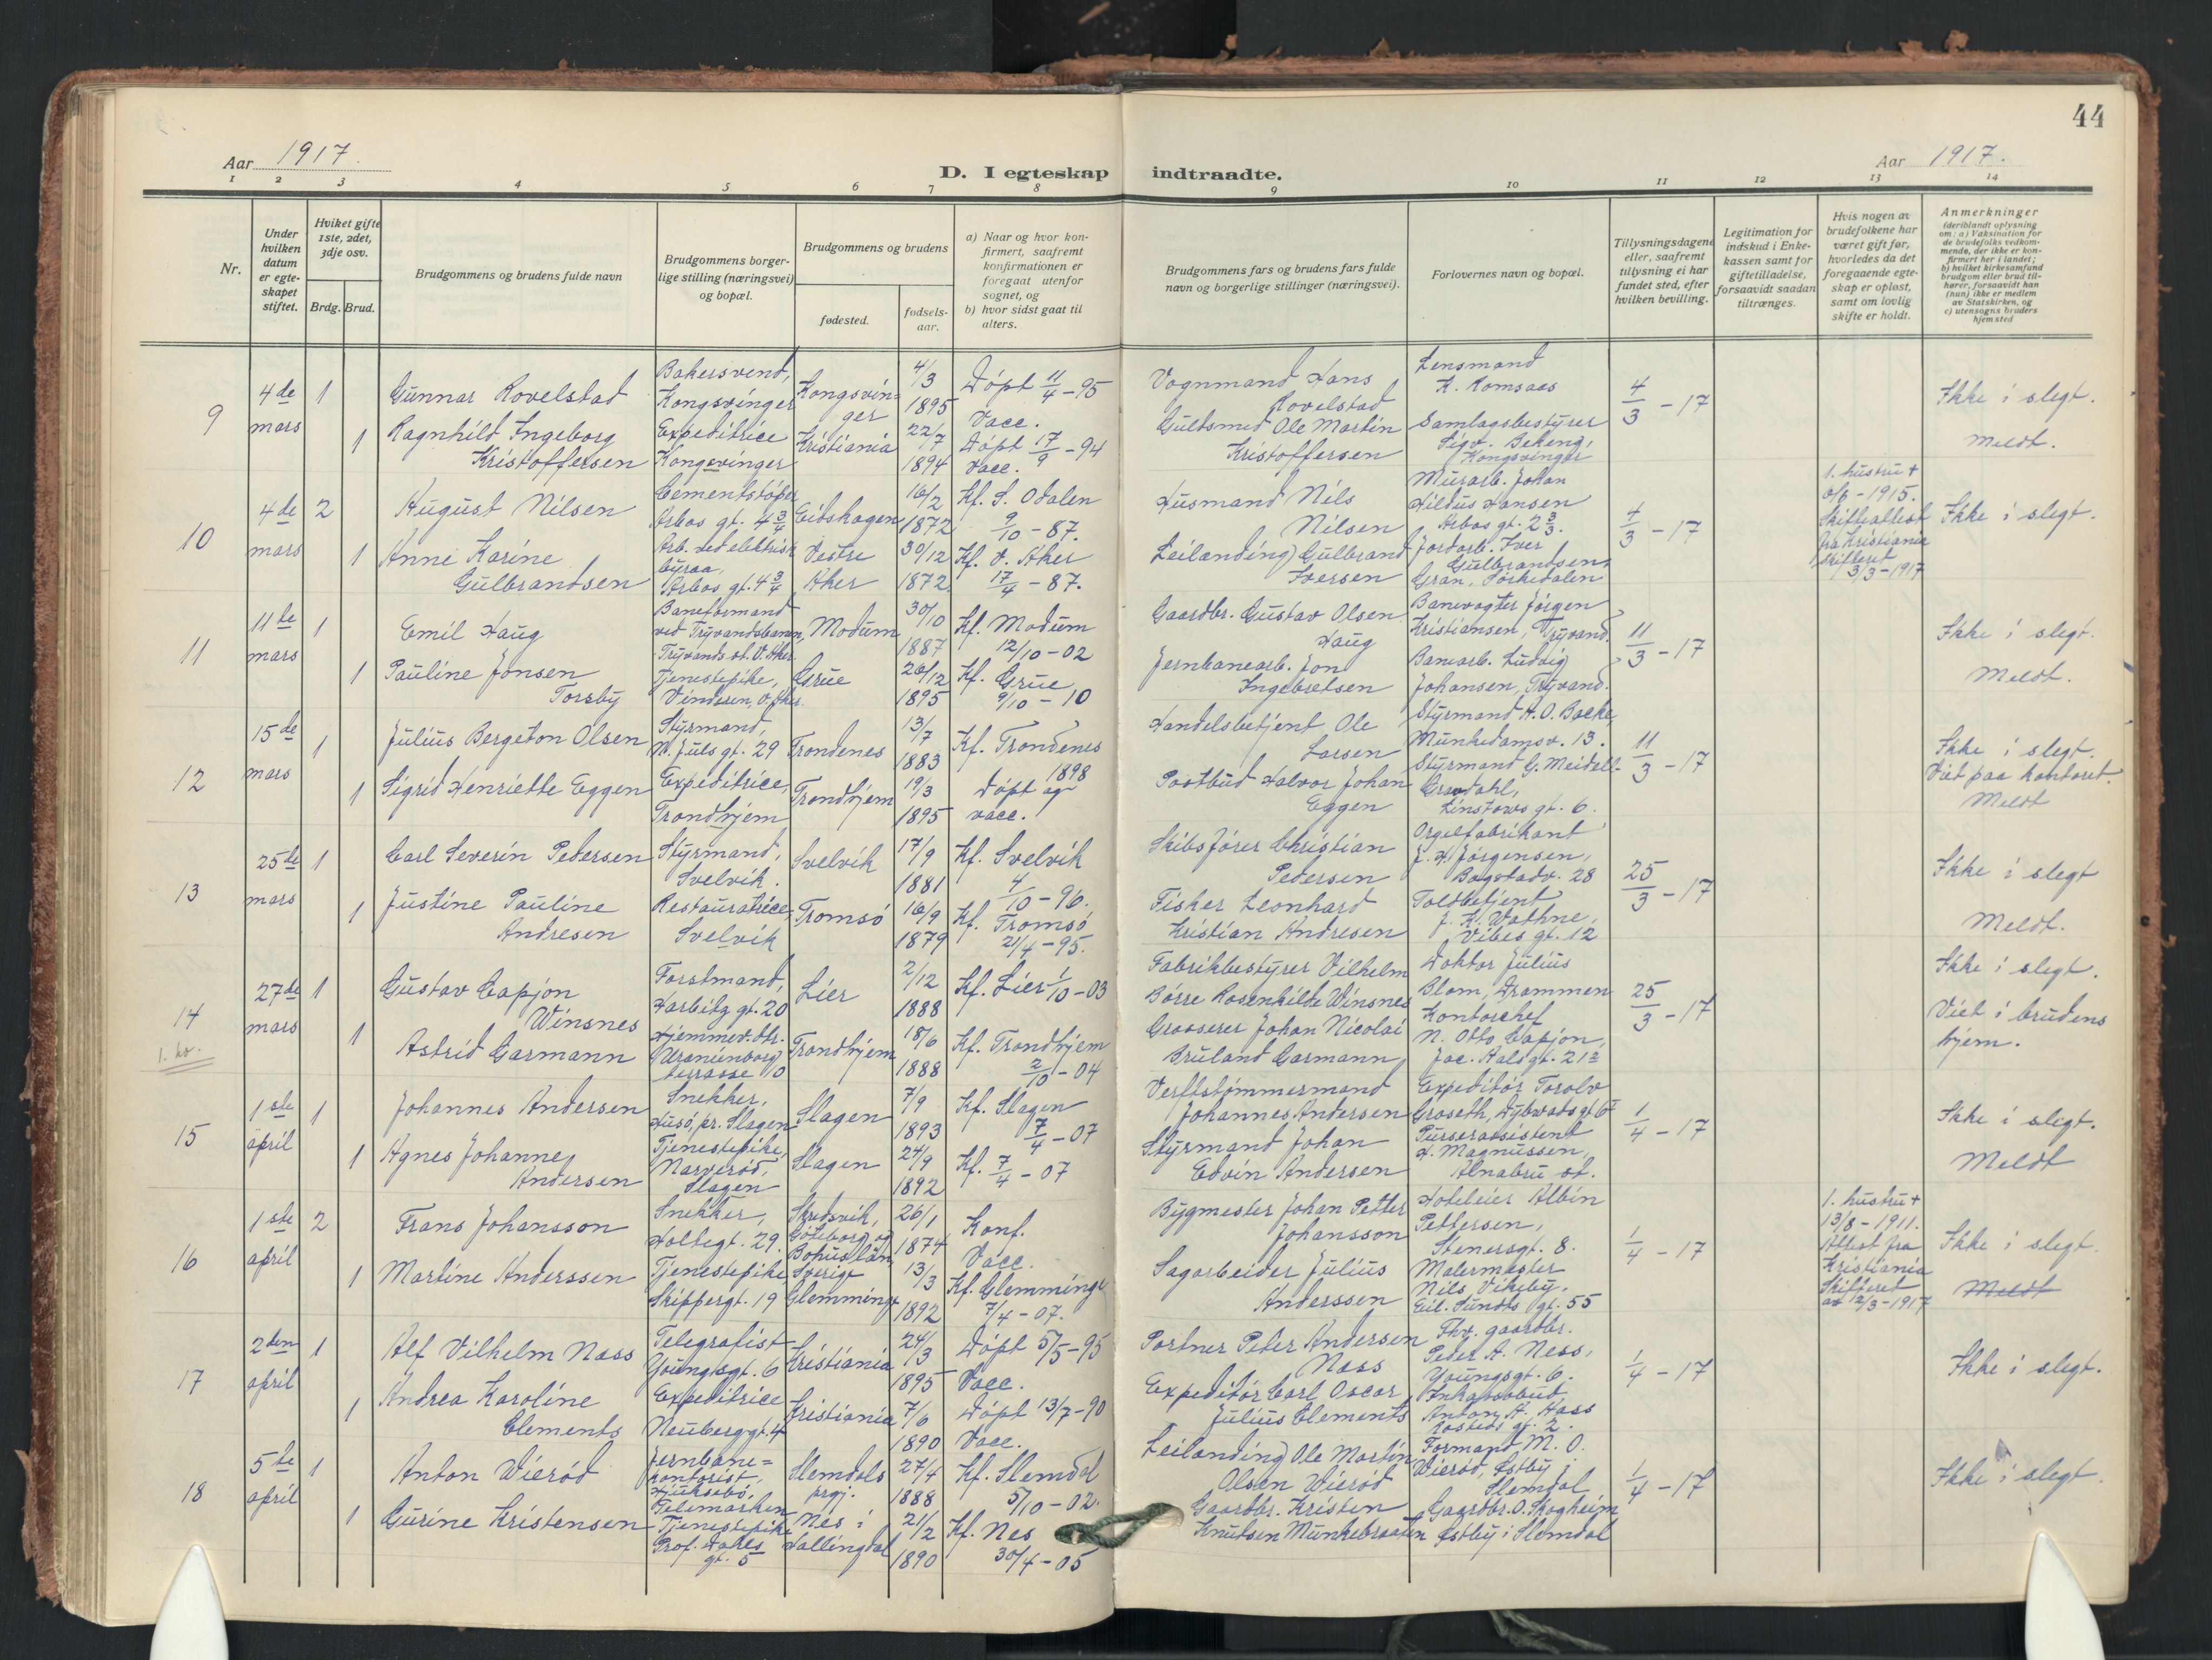 44
Aar 1917.
D. I egteskap indtraadte.
Aar 1917.
1 2 3 4 5 6 7 8 9 10 11 12 13 14
Nr.
Under hvilken datum er egteskapet stiftet.
Hvilket gifte 1ste, 2det, 3dje osv.
Brdg. Brud.
Brudgommens og brudens fulde navn
Brudgommens borgerlige stilling (næringsvei) og bopæl.
Brudgommens og brudens
fødested.
fødselsaar.
a) Naar og hvor konfirmert, saafremt konfirmationen er foregaat utenfor sognet, og
b) hvor sidst gaat til alters.
Brudgommens fars og brudens fars fulde navn og borgerlige stillinger (næringsvei).
Forlovernes navn og bopæl.
Tillysningsdagene eller, saafremt tillysning ei har fundet sted, efter hvilken bevilling.
Legitimation for indskud i Enkekassen samt for giftetilladelse, forsaavidt saadan tiltrænges.
Hvis nogen av brudefolkene har været gift før, hvorledes da det foregaaende egteskap er opløst, samt om lovlig skifte er holdt.
Anmerkninger (deriblandt oplysning om: a) Vaksination for de brudefolks vedkommende, der ikke er konfirmert her i landet; b) hvilket kirkesamfund brudgom eller brud tilhører, forsaavidt han (hun) ikke er medlem av Statskirken, og c) utensogns bruders hjemsted
9
4de mars
1
Gunnar Rovelstad
Bakersvend, Kongsvinger
Kongsvinger
4/3 1895
Døpt 11/4 - 95 Vacc.
Vognmand Hans Rovelstad
Lensmand K. Romsaas
4/3 - 17
Ikke i slegt.
1
Ragnhild Ingeborg Kristoffersen
Expeditrice Kongsvinger
Kristiania
22/7 1894
Døpt 17/9 - 94 Vacc.
Guldsmed Ole Martin Kristoffersen
Samlagsbestyrer Sigv. Bekeng, Kongsvinger
Meldt.
10
4de mars
2
August Nilsen
Cementstøper Arbos gt. 4 3/4
Eidskogen
16/2 1872
Kf. S. Odalen 9/10 - 87.
Husmand Nils Nilsen
Murarb. Johan Hildus Hansen Arbos gt. 2 3/3.
4/3 - 17
1. hustru + 6/6 - 1915. Skifteattest fra Kristiania Skifteret 3/3 - 1917
Ikke i slegt.
1
Anne Karine Gulbrandsen
Arb. ved elektrisk byraa, Arbos gt. 4 3/4
Vestre Aker
30/12 1872
Kf. V. Aker 17/4 - 87.
Leilænding Gulbrand Iversen
Jordarb. Iver Gulbrandsen, Gran, Sørkedalen
11
11te mars
1
Emil Haug
Baneformand ved Tryvandsbanen, Tryvands st. V. Aker
Modum
30/10 1887
Kf. Modum 12/10 - 02
Gaardbr. Gustav Olsen Haug
Banevogter Jørgen Kristiansen, Tryvand.
11/3 - 17
Ikke i slegt.
1
Pauline Jonsen Torsby
Tjenestepike, Vinderen, V. Aker.
Grue
26/12 1895
Kf. Grue 9/10 - 10
Jernbanearb. Jon Ingebretsen
Banearb. Ludvig Johansen, Tryvand.
Meldt.
12
15de mars
1
Julius Bergeton Olsen
Styrmand, N. Juls gt. 29
Trondenes
13/7 1883
Kf. Trondenes 1898
Handelsbetjent Ole Larsen
Styrmand H. O. Backe, Munkedamsv. 13.
11/3 - 17
Ikke i slegt.
Viet paa kontoret.
1
Sigrid Henriette Eggen
Expeditrice, Trondhjem
Trondhjem
19/3 1895
Døpt og vacc.
Postbud Halvor Johan Eggen
Styrmand G. Meidell Gravdahl, Linstows gt. 6.
Meldt
13
25de mars
1
Carl Severin Pedersen
Styrmand, Svelvik.
Svelvik
17/9 1881
Kf. Svelvik 4/10 - 96.
Skibsfører Christian Pedersen
Orgelfabrikant J. H. Jørgensen, Bogstadv. 28
25/3 - 17
Ikke i slegt
1
Justine Pauline Andresen
Restauratrice, Svelvik
Tromsø
16/9 1879
Kf. Tromsø 21/4 - 95.
Fisker Leonhard Kristian Andresen
Toldbetjent J. K. Vathne, Vibes gt. 12
Meldt.
14
1. kv.
27de mars
1
Gustav Capjon Winsnes
Forstmand, Harbitz gt. 20
Lier
2/12 1888
Kf. Lier 1/10 - 03
Fabrikbestyrer Vilhelm Børre Rosenkilde Winsnes
Doktor Julius Blom, Drammen
25/3 - 17
Ikke i slegt.
1
Astrid Garmann
Hjemmev. dtr. Uranienborg terrasse 10
Trondhjem
18/6 1888
Kf. Trondhjem 2/10 - 04
Grosserer Johan Nicolai Bruland Garmann
Kontorchef N. Otto Capjon, Jac. Aalsgt. 21 2
Viet i brudens hjem.
15
1ste april
1
Johannes Andersen
Snekker, Husø, pr. Slagen
Slagen
7/9 1893
Kf. Slagen 7/4 - 07
Verftstømmermand Johannes Andersen
Expeditør Torolv Groseth, Dybwadsgt. 6
1/4 - 17
Ikke i slegt.
1
Agnes Johanne Andersen
Tjenestepike, Narverød, Slagen
Slagen
24/9 1892
Kf. 7/4 - 07
Styrmand Johan Edvin Andersen
Purserassistent H. Magnussen, Alnabru st.
Meldt
16
1ste april
2
Frans Johansson
Snekker, Holtegt. 29.
Skredsvik, Gøteborg og Bohus län, Sverige
26/1 1874
Konf. Vacc.
Bygmester Johan Petter Johansson
Hoteleier Albin Pettersen, Stenersgt. 8.
1/4 - 17
1. hustru + 13/8 - 1911. Attest fra Kristiania Skifteret av 12/3 - 1917
Ikke i slegt.
1
Martine Anderssen
Tjenestepike Skippergt. 19
Glemminge
13/3 1892
Kf. Glemminge 7/4 - 07.
Sagarbeider Julius Anderssen
Malermester Nils Vikeby, Eil. Sundts gt. 55
Meldt
17
2den april
1
Alf Vilhelm Næss
Telegrafist Youngsgt. 6
Kristiania
24/3 1895
Døpt 5/5 - 95 Vacc.
Portner Peter Andersen Næss
Fhv. gaardbr. Peder A. Ness, Youngsgt. 6.
1/4 - 17
Ikke i slegt.
1
Andrea Karoline Clements
Expeditrice Neuberggt. 4
Kristiania
7/6 1890
Døpt 13/7 - 90 Vacc.
Expeditør Carl Oscar Julius Clements
Inkassobud Anton A. Næss gt. 2.
18
5te april
1
Anton Wierød
Jernbane= kontorist, Hjuksebø, Telemarken
Slemdals prgj.
27/4 1888
Kf. Slemdal 5/10 - 02.
Leilænding Ole Martin Olsen Wierød
Formand M. O. Wierød, Østby i Slemdal
1/4 - 17
Ikke i slegt.
1
Gurine Kristensen
Tjenestepike Prof. Dahls gt. 5
Nes i Hallingdal
21/2 1890
Kf. Nes 30/4 - 05
Gaardbr. Kristen Knutsen Munkebraaten
Gaardbr. O. Skogheim Østby i Slemdal